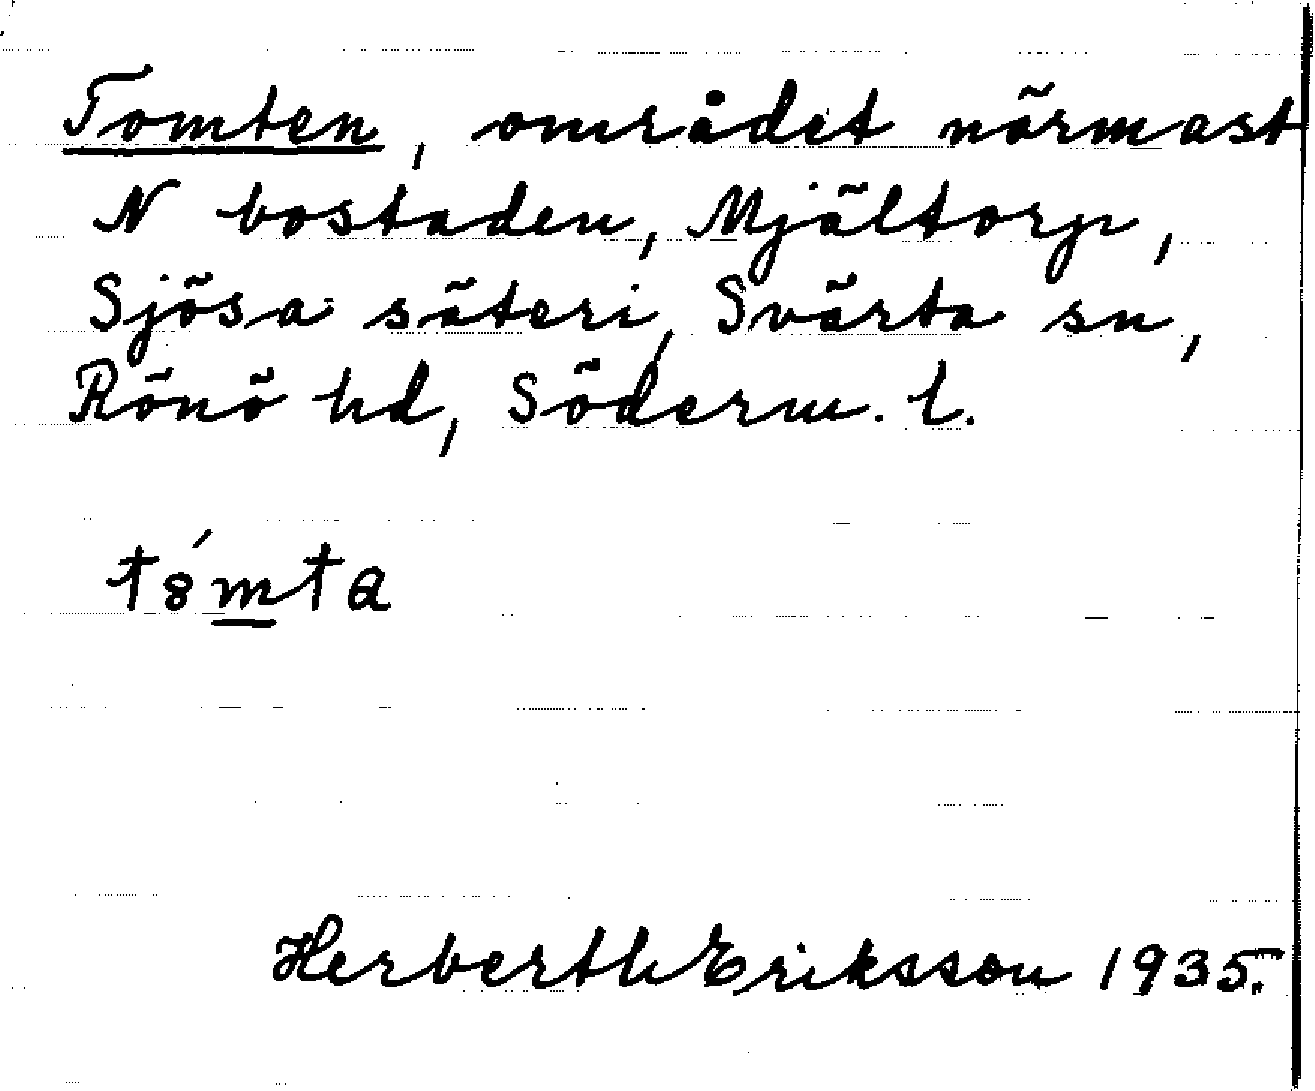 Tomten, området närmast
N bostaden, Mjältorp,
Sjösa säteri, Svärta sn,
Rönö hd, Söderm. l.
t8́mta
Herberth Eriksson 1935.